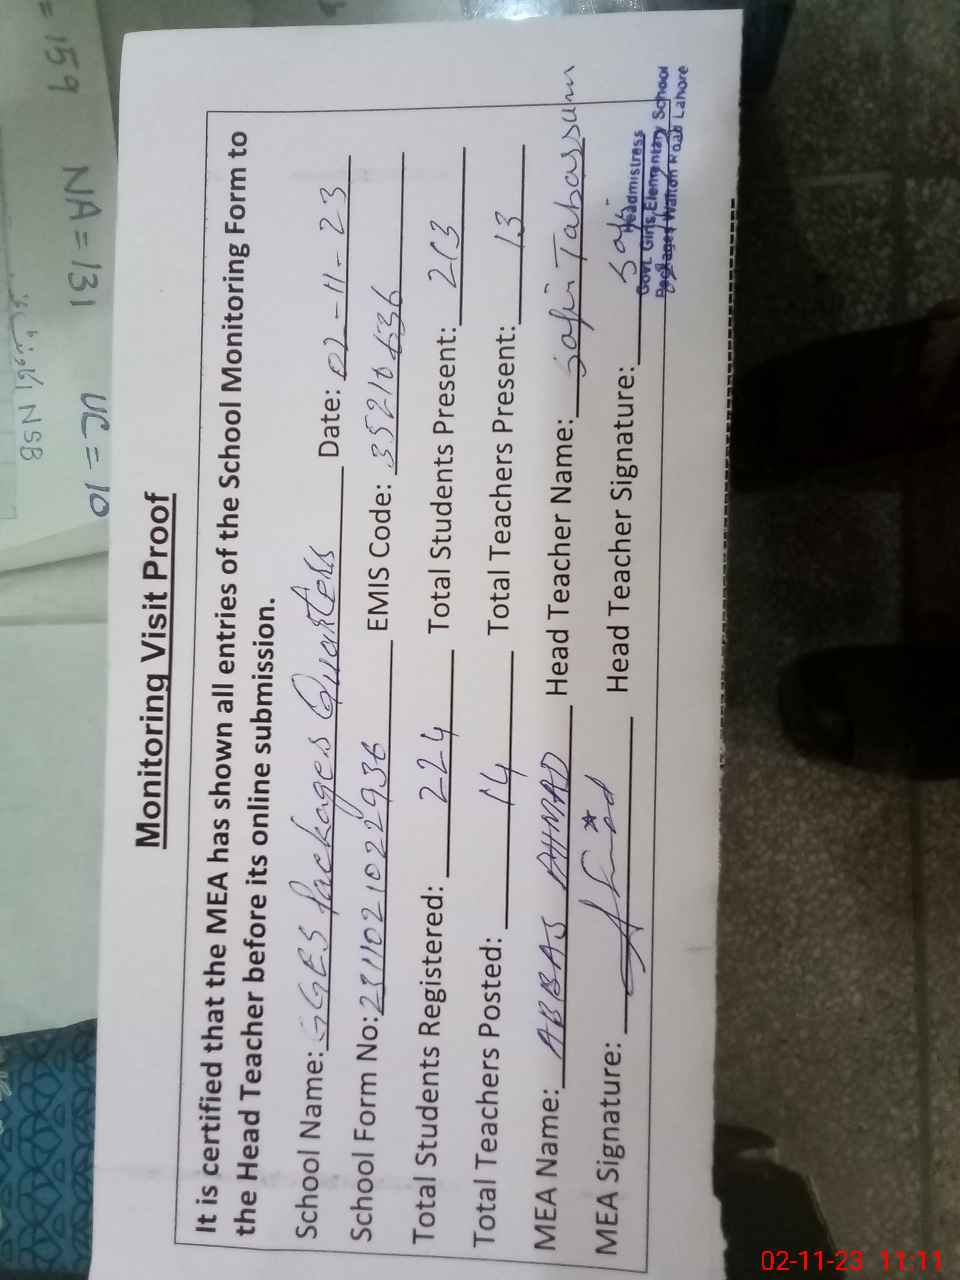 = 159
NA = 131
UC = 10
NSB
Monitoring Visit Proof
It is certified that the MEA has shown all entries of the School Monitoring Form to
the Head Teacher before its online submission.
School Name: GGES Packages Quarters Date: 02-11-23
School Form No: 2311021022936 EMIS Code: 35210636
Total Students Registered: 224 Total Students Present: 213
Total Teachers Posted: 14 Total Teachers Present: 13
MEA Name: ABBAS AHMAD Head Teacher Name: Safia Tabassum
MEA Signature: Head Teacher Signature:
Headmistress
Govt. Girls Elementary School
Packages Walton Road Lahore
02-11-23 11:11